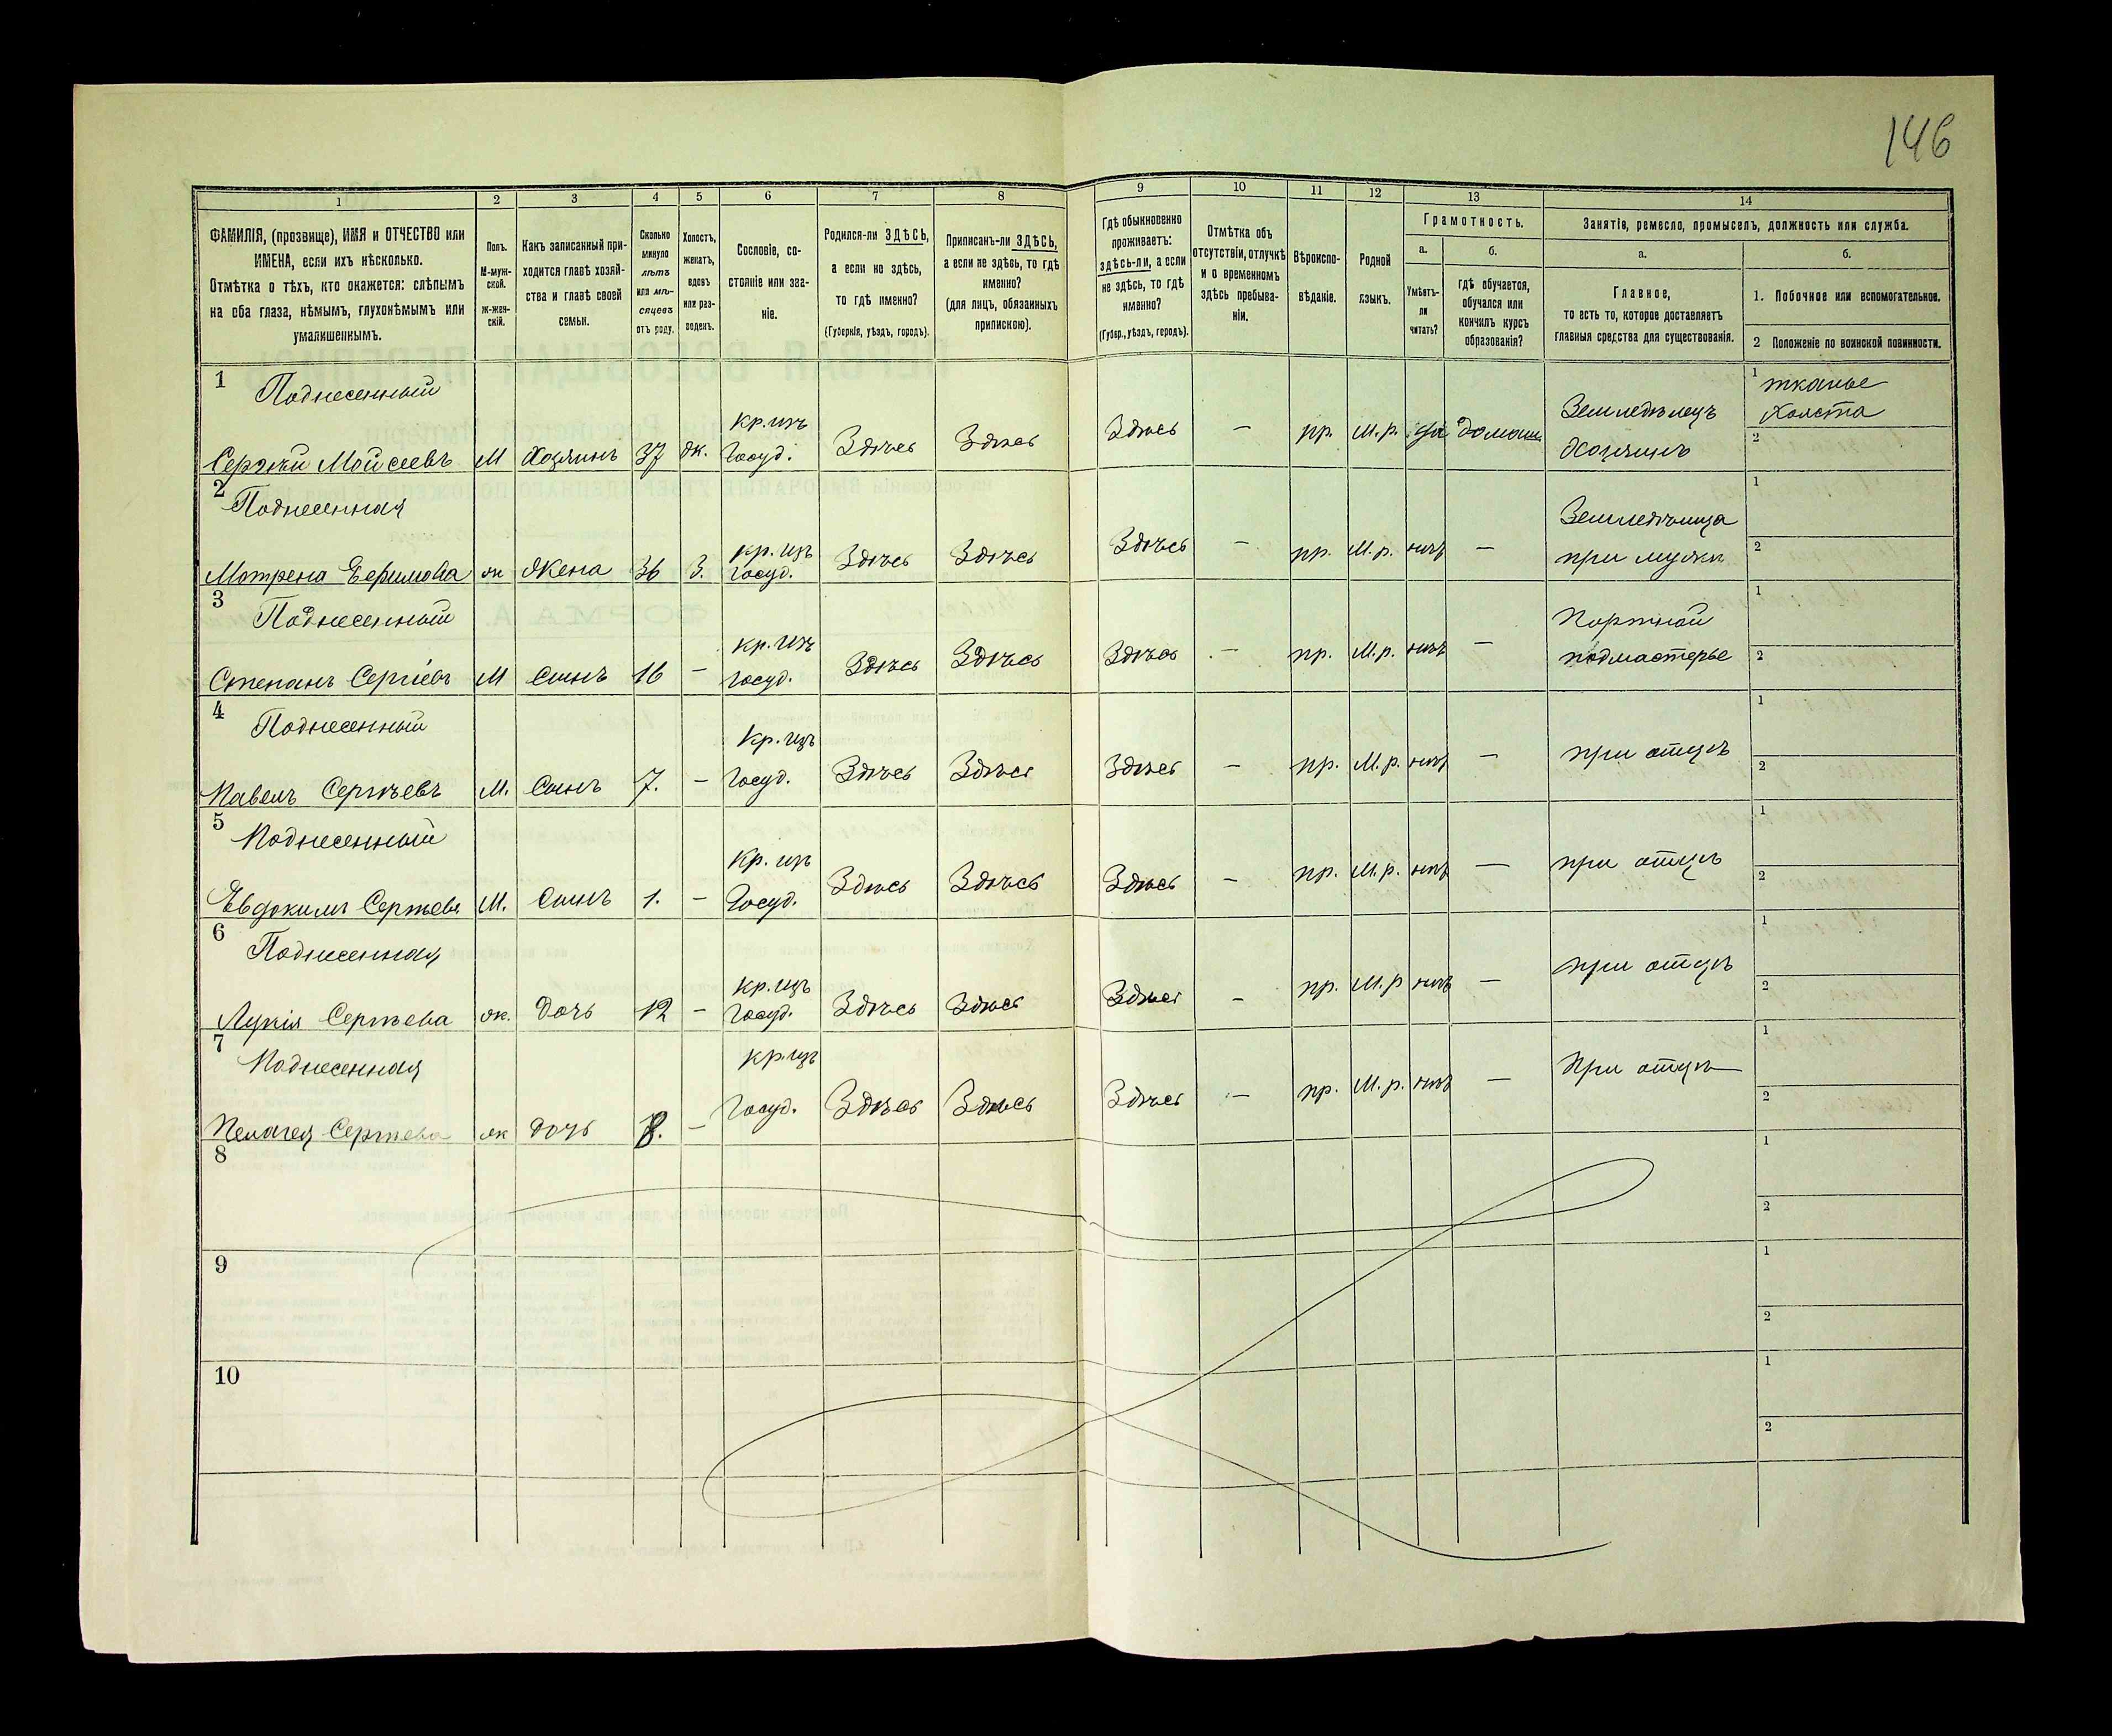 146
1
2
3
4
5
6
7
8
9
10
11
12
13
14
ФАМИЛІЯ, (прозвище), ИМЯ и ОТЧЕСТВО или
ИМЕНА, если ихъ нѣсколько.
Отмѣтка о тѣхъ, кто окажется: слѣпымъ
на оба глаза, нѣмымъ, глухонѣмымъ или
умалишеннымъ.
Полъ.
М-муж-
ской.
ж-жен-
скій.
Какъ записанный при-
ходится главѣ хозяй-
ства и главѣ своей
семьи.
Сколько
минуло
лѣтъ
или мѣ-
сяцевъ
отъ роду.
Холостъ,
женатъ,
вдовъ
или раз-
веденъ.
Сословіе, со-
стояніе или зва-
ніе.
Родился-ли ЗДѢСЬ,
а если не здѣсь,
то гдѣ именно?
(Губернія, уѣздъ, городъ).
Приписанъ-ли ЗДѢСЬ,
а если не здѣсь, то гдѣ
именно?
(для лицъ, обязанныхъ
припискою).
Гдѣ обыкновенно
проживаетъ:
здѣсь-ли, а если
не здѣсь, то гдѣ
именно?
(Губер., уѣздъ, городъ).
Отмѣтка объ
отсутствіи, отлучкѣ
и о временномъ
здѣсь пребыва-
ніи.
Вѣроиспо-
вѣданіе.
Родной
языкъ.
Грамотность.
а.
Умѣетъ-
ли
читать?
б.
гдѣ обучается,
обучался или
кончилъ курсъ
образованія?
Занятія, ремесло, промыселъ, должность или служба.
а.
Главное,
то есть то, которое доставляетъ
главныя средства для существованія.
б.
1. Побочное или вспомогательное.
2 Положеніе по воинской повинности.
1 Поднесенный
Сергѣй Моисеевъ М Хозяинъ 37 ж. кр. изъ Госуд. Здѣсь Здѣсь Здѣсь — пр. М.р. да домаш. Земледѣлецъ Хозяинъ 1 тканье холста 2
2 Поднесенная
Мотрена Ефимова ж Жена 36 З. кр. изъ госуд. Здѣсь Здѣсь Здѣсь — пр. М.р. нѣтъ — Земледѣлица при мужѣ 1 2
3 Поднесенный
Степанъ Сергіевъ М Сынъ 16 — кр. изъ госуд. Здѣсь Здѣсь Здѣсь — пр. М.р. нѣтъ — Портной подмастерье 1 2
4 Поднесенный
Павелъ Сергѣевъ М. Сынъ 7. — Кр. изъ Госуд. Здѣсь Здѣсь Здѣсь — пр. М.р. нѣтъ — при отцѣ 1 2
5 Поднесенный
Евдокимъ Сергѣевъ М. Сынъ 1. — Кр. изъ Госуд. Здѣсь Здѣсь Здѣсь — пр. М.р. нѣтъ — при отцѣ 1 2
6 Поднесенная
Лукія Сергѣева ж. Дочь 12 — кр. изъ Госуд. Здѣсь Здѣсь Здѣсь — пр. М.р нѣтъ — при отцѣ 1 2
7 Поднесенная
Пелагея Сергѣева ж Дочь 8. — кр. изъ Госуд. Здѣсь Здѣсь Здѣсь — пр. М.р. нѣтъ — При отцѣ 1 2
8 1 2
9 1 2
10 1 2